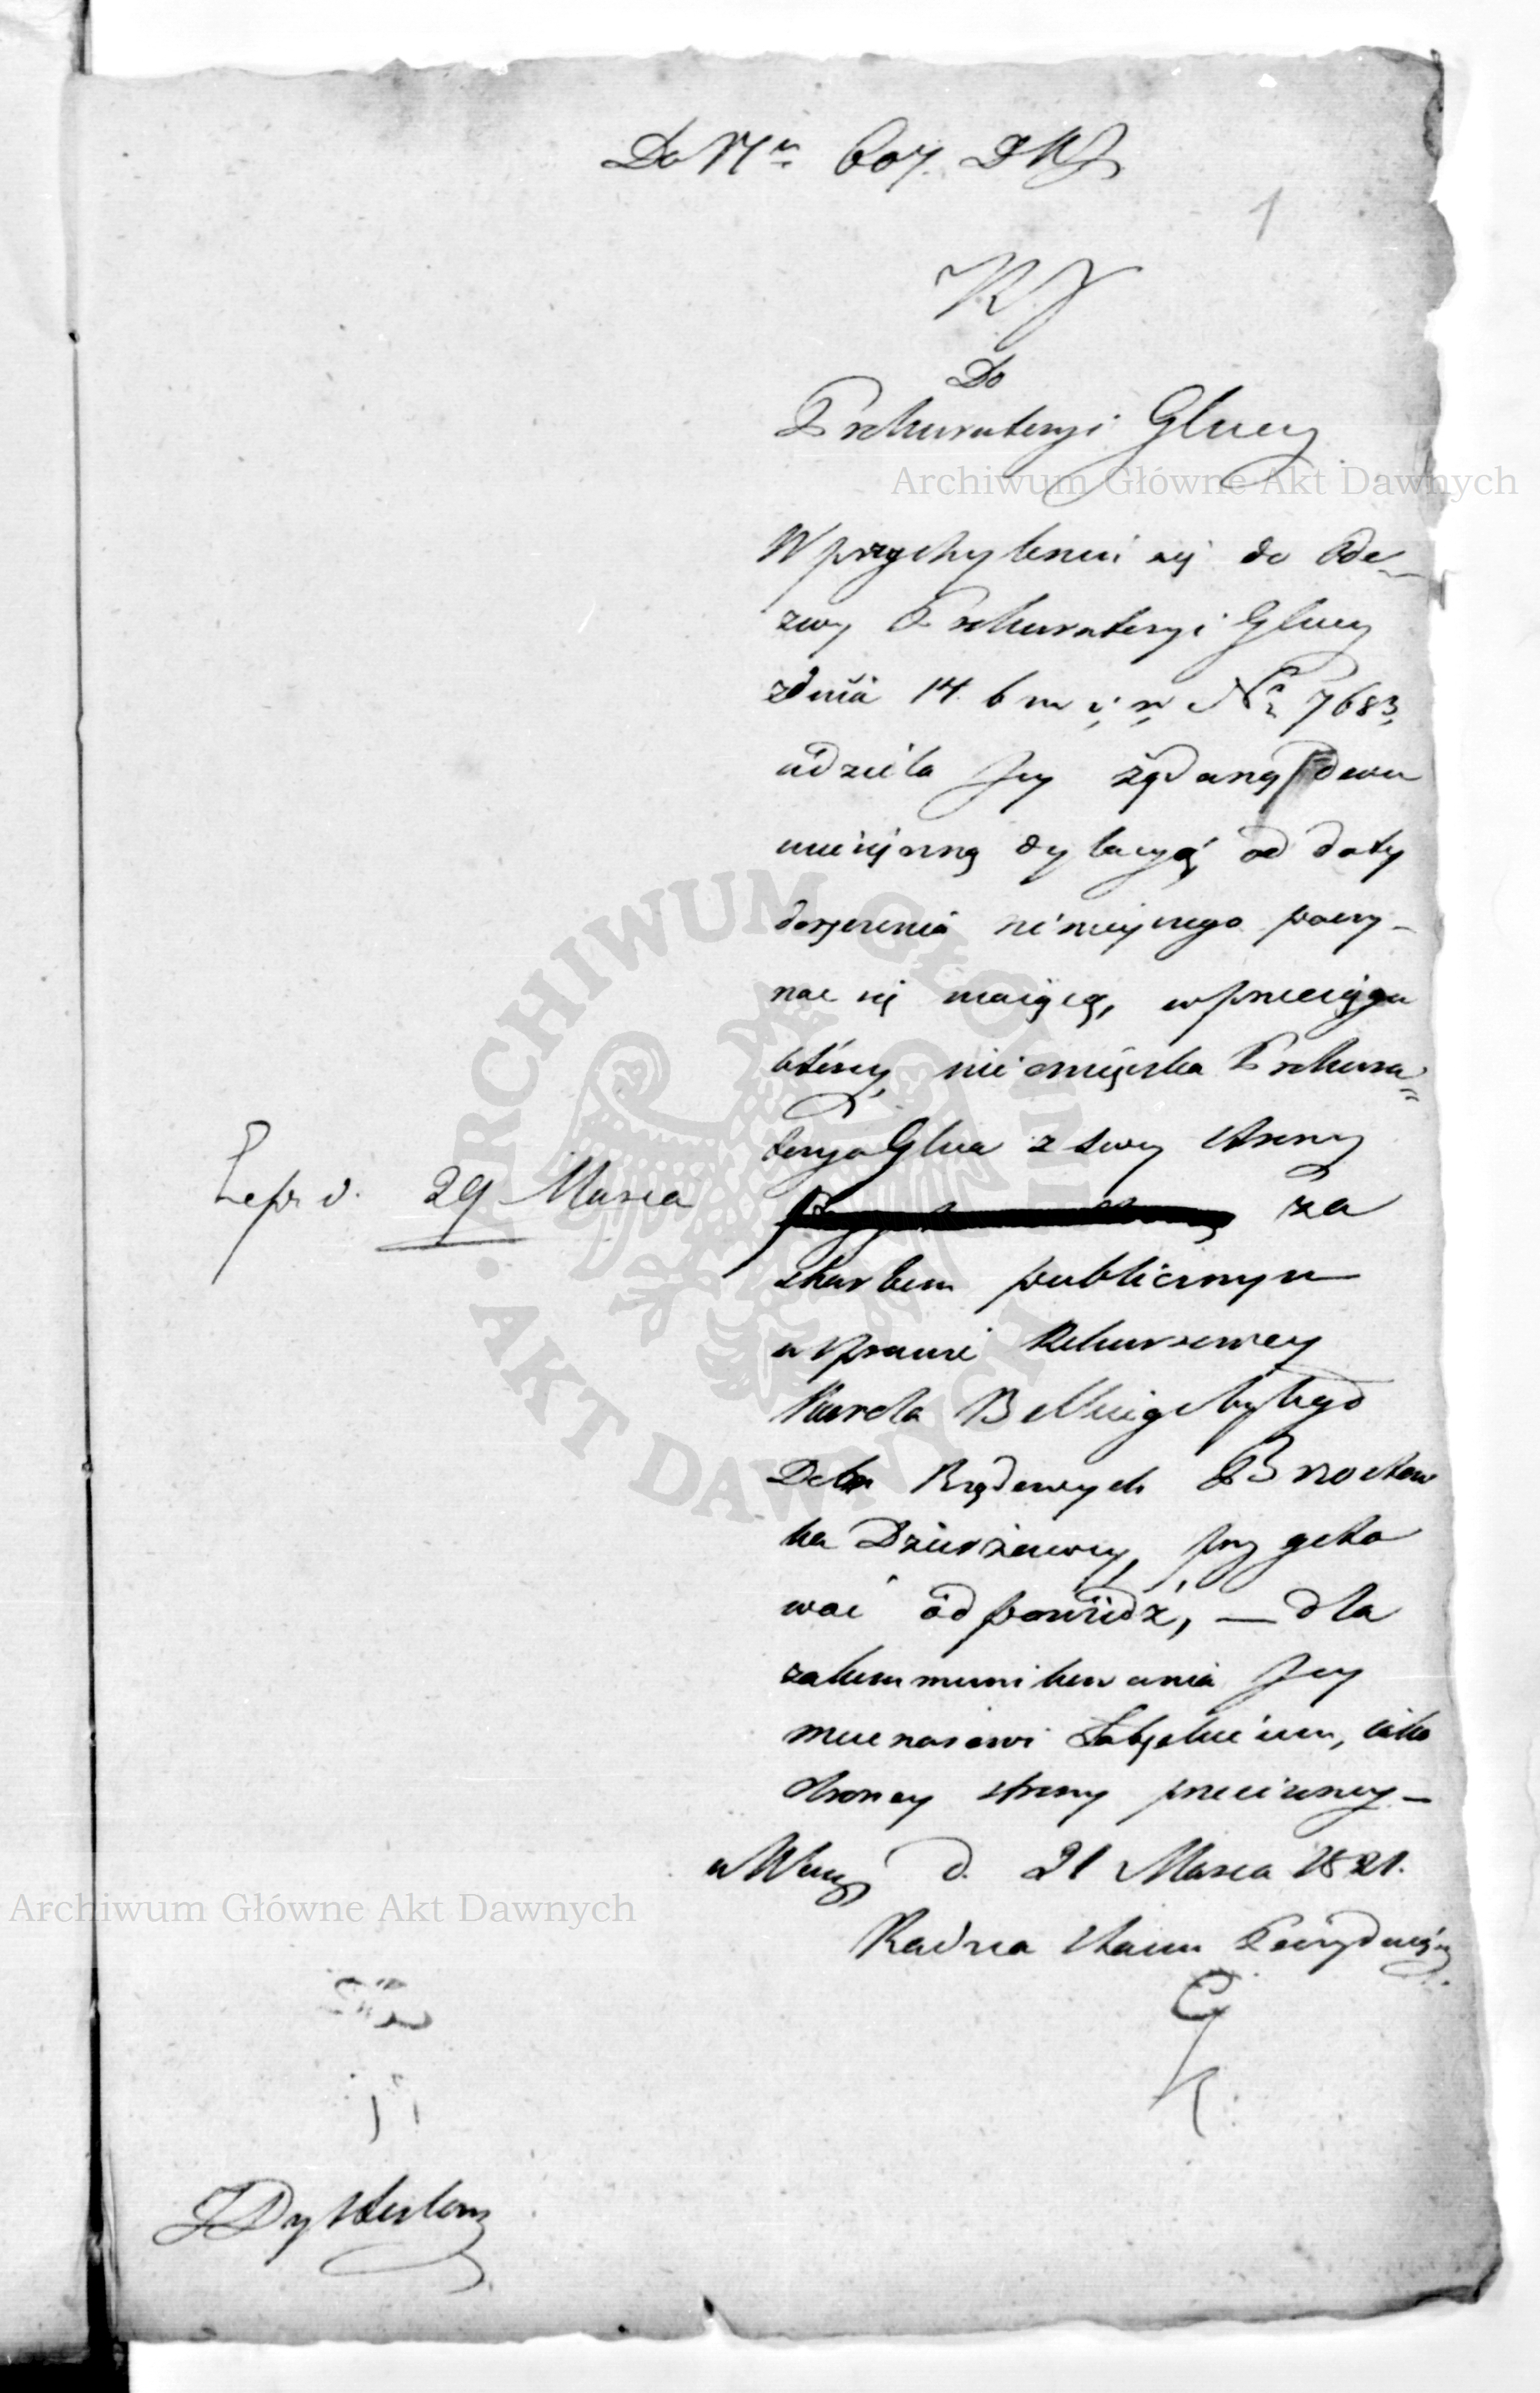 Do Nru 607. D.K.J.
1
K. J.
Do
Prokuratoryi Głney
Archiwum Główne Akt Dawnych
W przychyleniu się do Ode-
zwy Prokuratoryi Głney
z dnia 14. b m i r. Nro 7683,
udziela Jey żądaną dwu
miesięczną dylacyą, od daty
doręczenia ninieyszego poczy-
nać się maiącą, w przeciągu
którey, nie omieszka Prokura=
torya Głna z swey strony
za
skarbem publicznym
w sprawie Rekursowey
Karola Bellwig byłego
Dóbr Rządowych Brostow
ka Dzierżawcy, przygoto
wać odpowiedź, — dla
zakommunikowania Jey
mecenasowi, iako
obrońcy strony przeciwney —
w Warsz d. 21 Marca 1821.
Radca Stanu Prezyduiący.
Exp. d. 29 Marca
ARCHIWUM GŁÓWNE
AKT DAWNYCH
Archiwum Główne Akt Dawnych